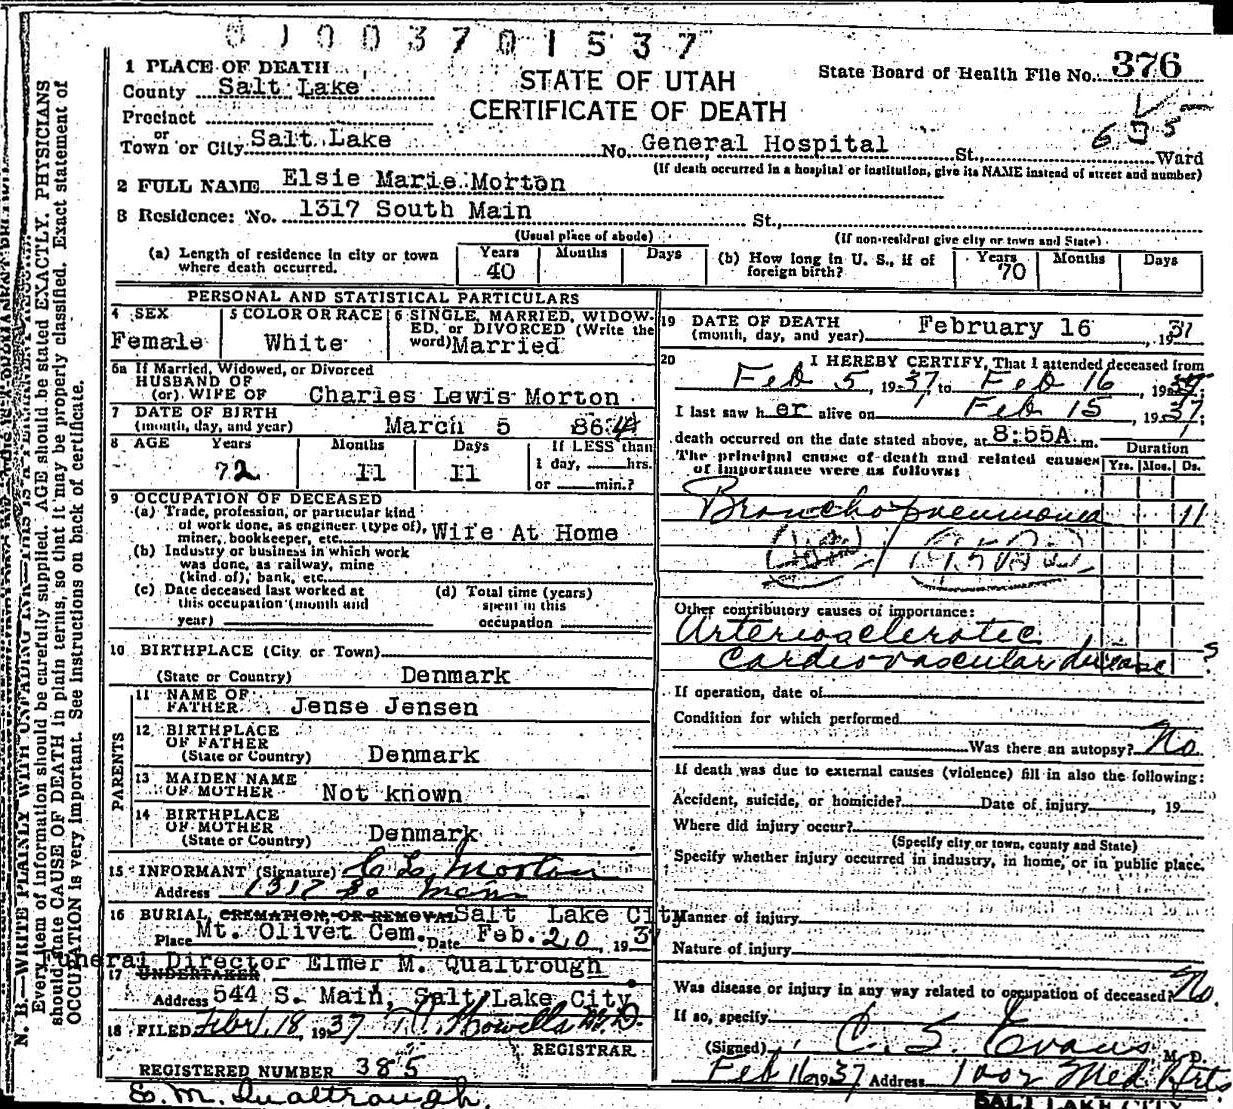 0 1 0 0 3 7 0 1 5 3 7
STATE OF UTAH
CERTIFICATE OF DEATH
State Board of Health File No. 376
1 PLACE OF DEATH
County Salt Lake
Precinct
or
Town or City Salt Lake No. General Hospital St., Ward
(If death occurred in a hospital or institution, give its NAME instead of street and number)
2 FULL NAME Elsie Marie Morton
3 Residence: No. 1317 South Main St.,
(Usual place of abode) (If non-resident give city or town and State)
(a) Length of residence in city or town where death occurred. Years 40 Months Days
(b) How long in U. S., if of foreign birth? Years 70 Months Days
PERSONAL AND STATISTICAL PARTICULARS
4 SEX Female
5 COLOR OR RACE White
6 SINGLE, MARRIED, WIDOWED, or DIVORCED (Write the word) Married
6a If Married, Widowed, or Divorced
HUSBAND OF
(or) WIFE OF Charles Lewis Morton
7 DATE OF BIRTH
(month, day, and year) March 5 864
8 AGE Years 72 Months 11 Days 11 If LESS than 1 day, hrs. or min.?
9 OCCUPATION OF DECEASED
(a) Trade, profession, or particular kind of work done, as engineer (type of), miner, bookkeeper, etc. Wife At Home
(b) Industry or business in which work was done, as railway, mine (kind of), bank, etc.
(c) Date deceased last worked at this occupation (month and year)
(d) Total time (years) spent in this occupation
10 BIRTHPLACE (City or Town)
(State or Country) Denmark
PARENTS
11 NAME OF FATHER Jense Jensen
12 BIRTHPLACE OF FATHER
(State or Country) Denmark
13 MAIDEN NAME OF MOTHER Not known
14 BIRTHPLACE OF MOTHER
(State or Country) Denmark
15 INFORMANT (Signature) C L Morton
Address 1317 So Main
16 BURIAL, CREMATION, OR REMOVAL Salt Lake City
Place Mt. Olivet Cem. Date Feb. 20, 1937
Funeral Director Elmer M. Qualtrough
17 UNDERTAKER
Address 544 S. Main, Salt Lake City
18 FILED Feb 18, 1937 Howells M.D.
REGISTRAR
REGISTERED NUMBER 385
E. M. Qualtrough.
19 DATE OF DEATH
(month, day, and year) February 16, 1937
20 I HEREBY CERTIFY, That I attended deceased from
Feb 5, 1937, to Feb 16, 1937
I last saw her alive on Feb 15, 1937;
death occurred on the date stated above, at 8:55A m.
The principal cause of death and related causes of importance were as follows:
Duration
Yrs. Mos. Ds.
Bronchopneumonia 11
Other contributory causes of importance:
Arteriosclerotic
cardiovascular disease ?
If operation, date of
Condition for which performed
Was there an autopsy? No
If death was due to external causes (violence) fill in also the following:
Accident, suicide, or homicide? Date of injury , 19
Where did injury occur?
(Specify city or town, county and State)
Specify whether injury occurred in industry, in home, or in public place.
Manner of injury
Nature of injury
Was disease or injury in any way related to occupation of deceased? No.
If so, specify
(Signed) C. S. Evans M. D.
Feb 16 1937 Address Med Arts
SALT LAKE CITY
N. B.—WRITE PLAINLY WITH UNFADING INK—THIS IS A PERMANENT RECORD
Every item of information should be carefully supplied. AGE should be stated EXACTLY. PHYSICIANS
should state CAUSE OF DEATH in plain terms, so that it may be properly classified. Exact statement of
OCCUPATION is very important. See instructions on back of certificate.